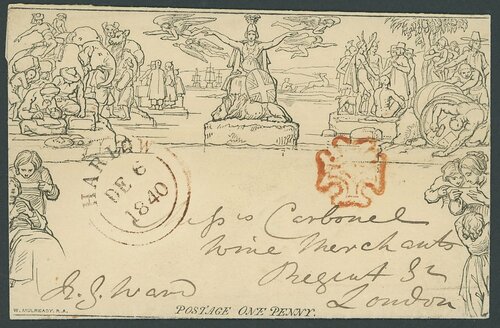 HARLOW
DE 6
1840
Messrs Carbonel
Wine Merchants
Regent St
London
R. J. Ward
POSTAGE ONE PENNY.
W. MULREADY. R.A.